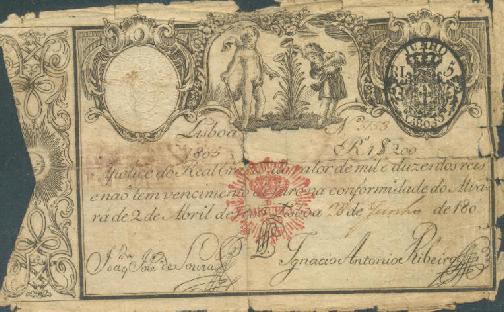 Lisboa Nº
1805 Rs 1$200
Apolice do Real valor de mil e duzentos reis
e não tem vencimento de juro na conformidade do Alva
rá de 2 de Abril de Lisboa 28 de Junho de 180
Joaq. José de Souza Ignacio Antonio Ribeiro